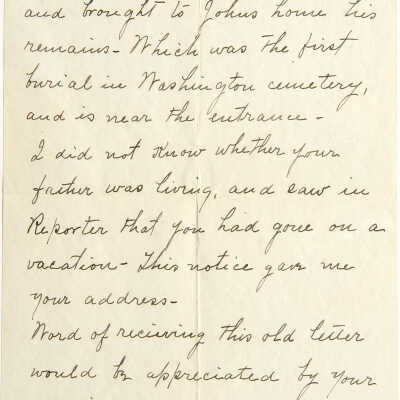 and brought to Johns home his
remains - Which was the first
burial in Washington cemetery,
and is near the entrance -
I did not know whether your
father was living, and saw in
Reporter that you had gone on a
vacation - This notice gave me
your address -
Word of recieving this old letter
would be appreciated by your